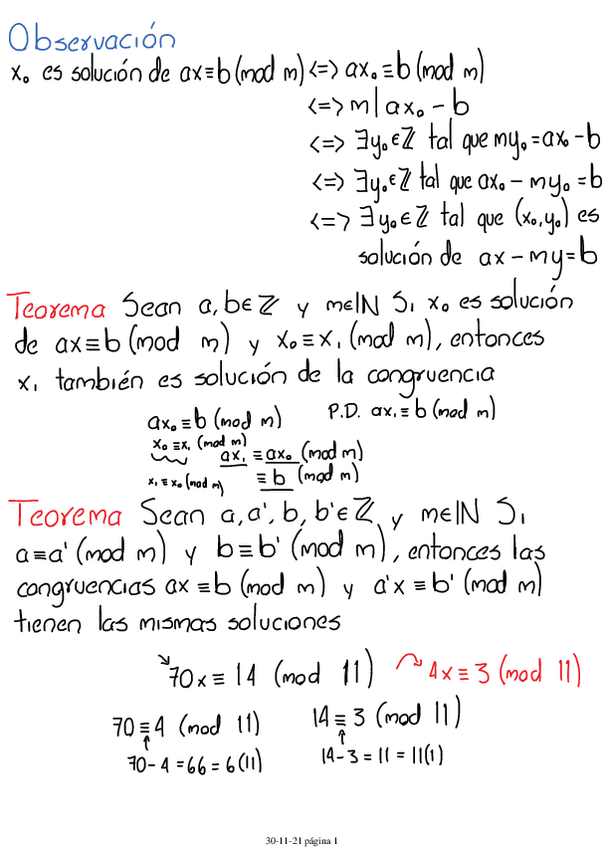 Observación
x₀ es solución de ax≡b (mod m) <=> ax₀ ≡ b (mod m)
<=> m | ax₀ - b
<=> ∃y₀∈ℤ tal que my₀ = ax₀ - b
<=> ∃y₀∈ℤ tal que ax₀ - my₀ = b
<=> ∃y₀∈ℤ tal que (x₀, y₀) es
solución de ax - my = b
Teorema Sean a, b∈ℤ y m∈ℕ Si x₀ es solución
de ax≡b (mod m) y x₀≡x₁ (mod m), entonces
x₁ también es solución de la congruencia
ax₀ ≡ b (mod m) P.D. ax₁ ≡ b (mod m)
x₀ ≡ x₁ (mod m)
ax₁ ≡ ax₀ (mod m)
x₁ ≡ x₀ (mod m) ≡ b (mod m)
Teorema Sean a, a', b, b'∈ℤ y m∈ℕ Si
a≡a' (mod m) y b≡b' (mod m), entonces las
congruencias ax ≡ b (mod m) y a'x ≡ b' (mod m)
tienen las mismas soluciones
70x ≡ 14 (mod 11) 4x ≡ 3 (mod 11)
70 ≡ 4 (mod 11) 14 ≡ 3 (mod 11)
70 - 4 = 66 = 6(11) 14 - 3 = 11 = 11(1)
30-11-21 página 1